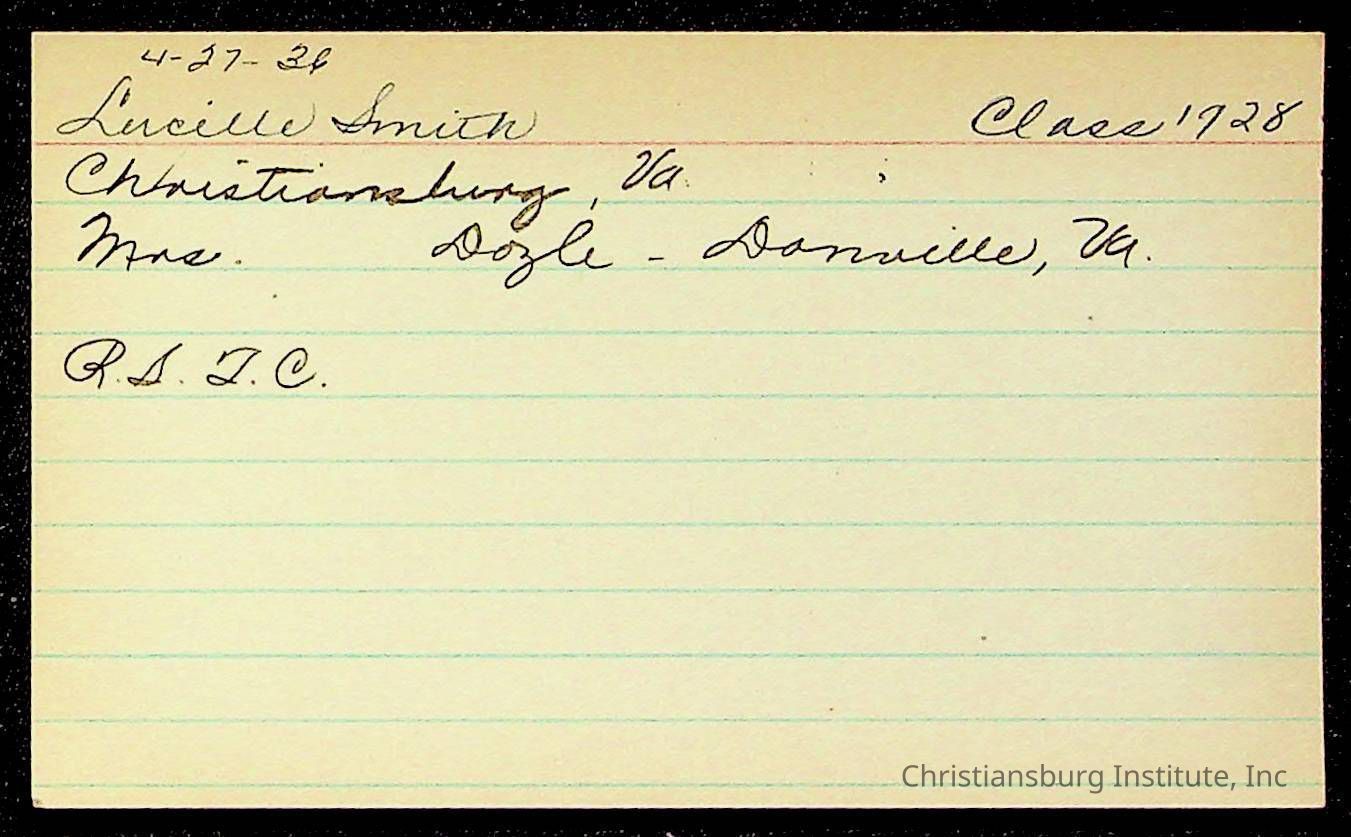 4-27-36
Lucille Smith Class 1928
Christiansburg, Va.
Mrs. Dozle - Danville, Va.
R.S.T.C.
Christiansburg Institute, Inc